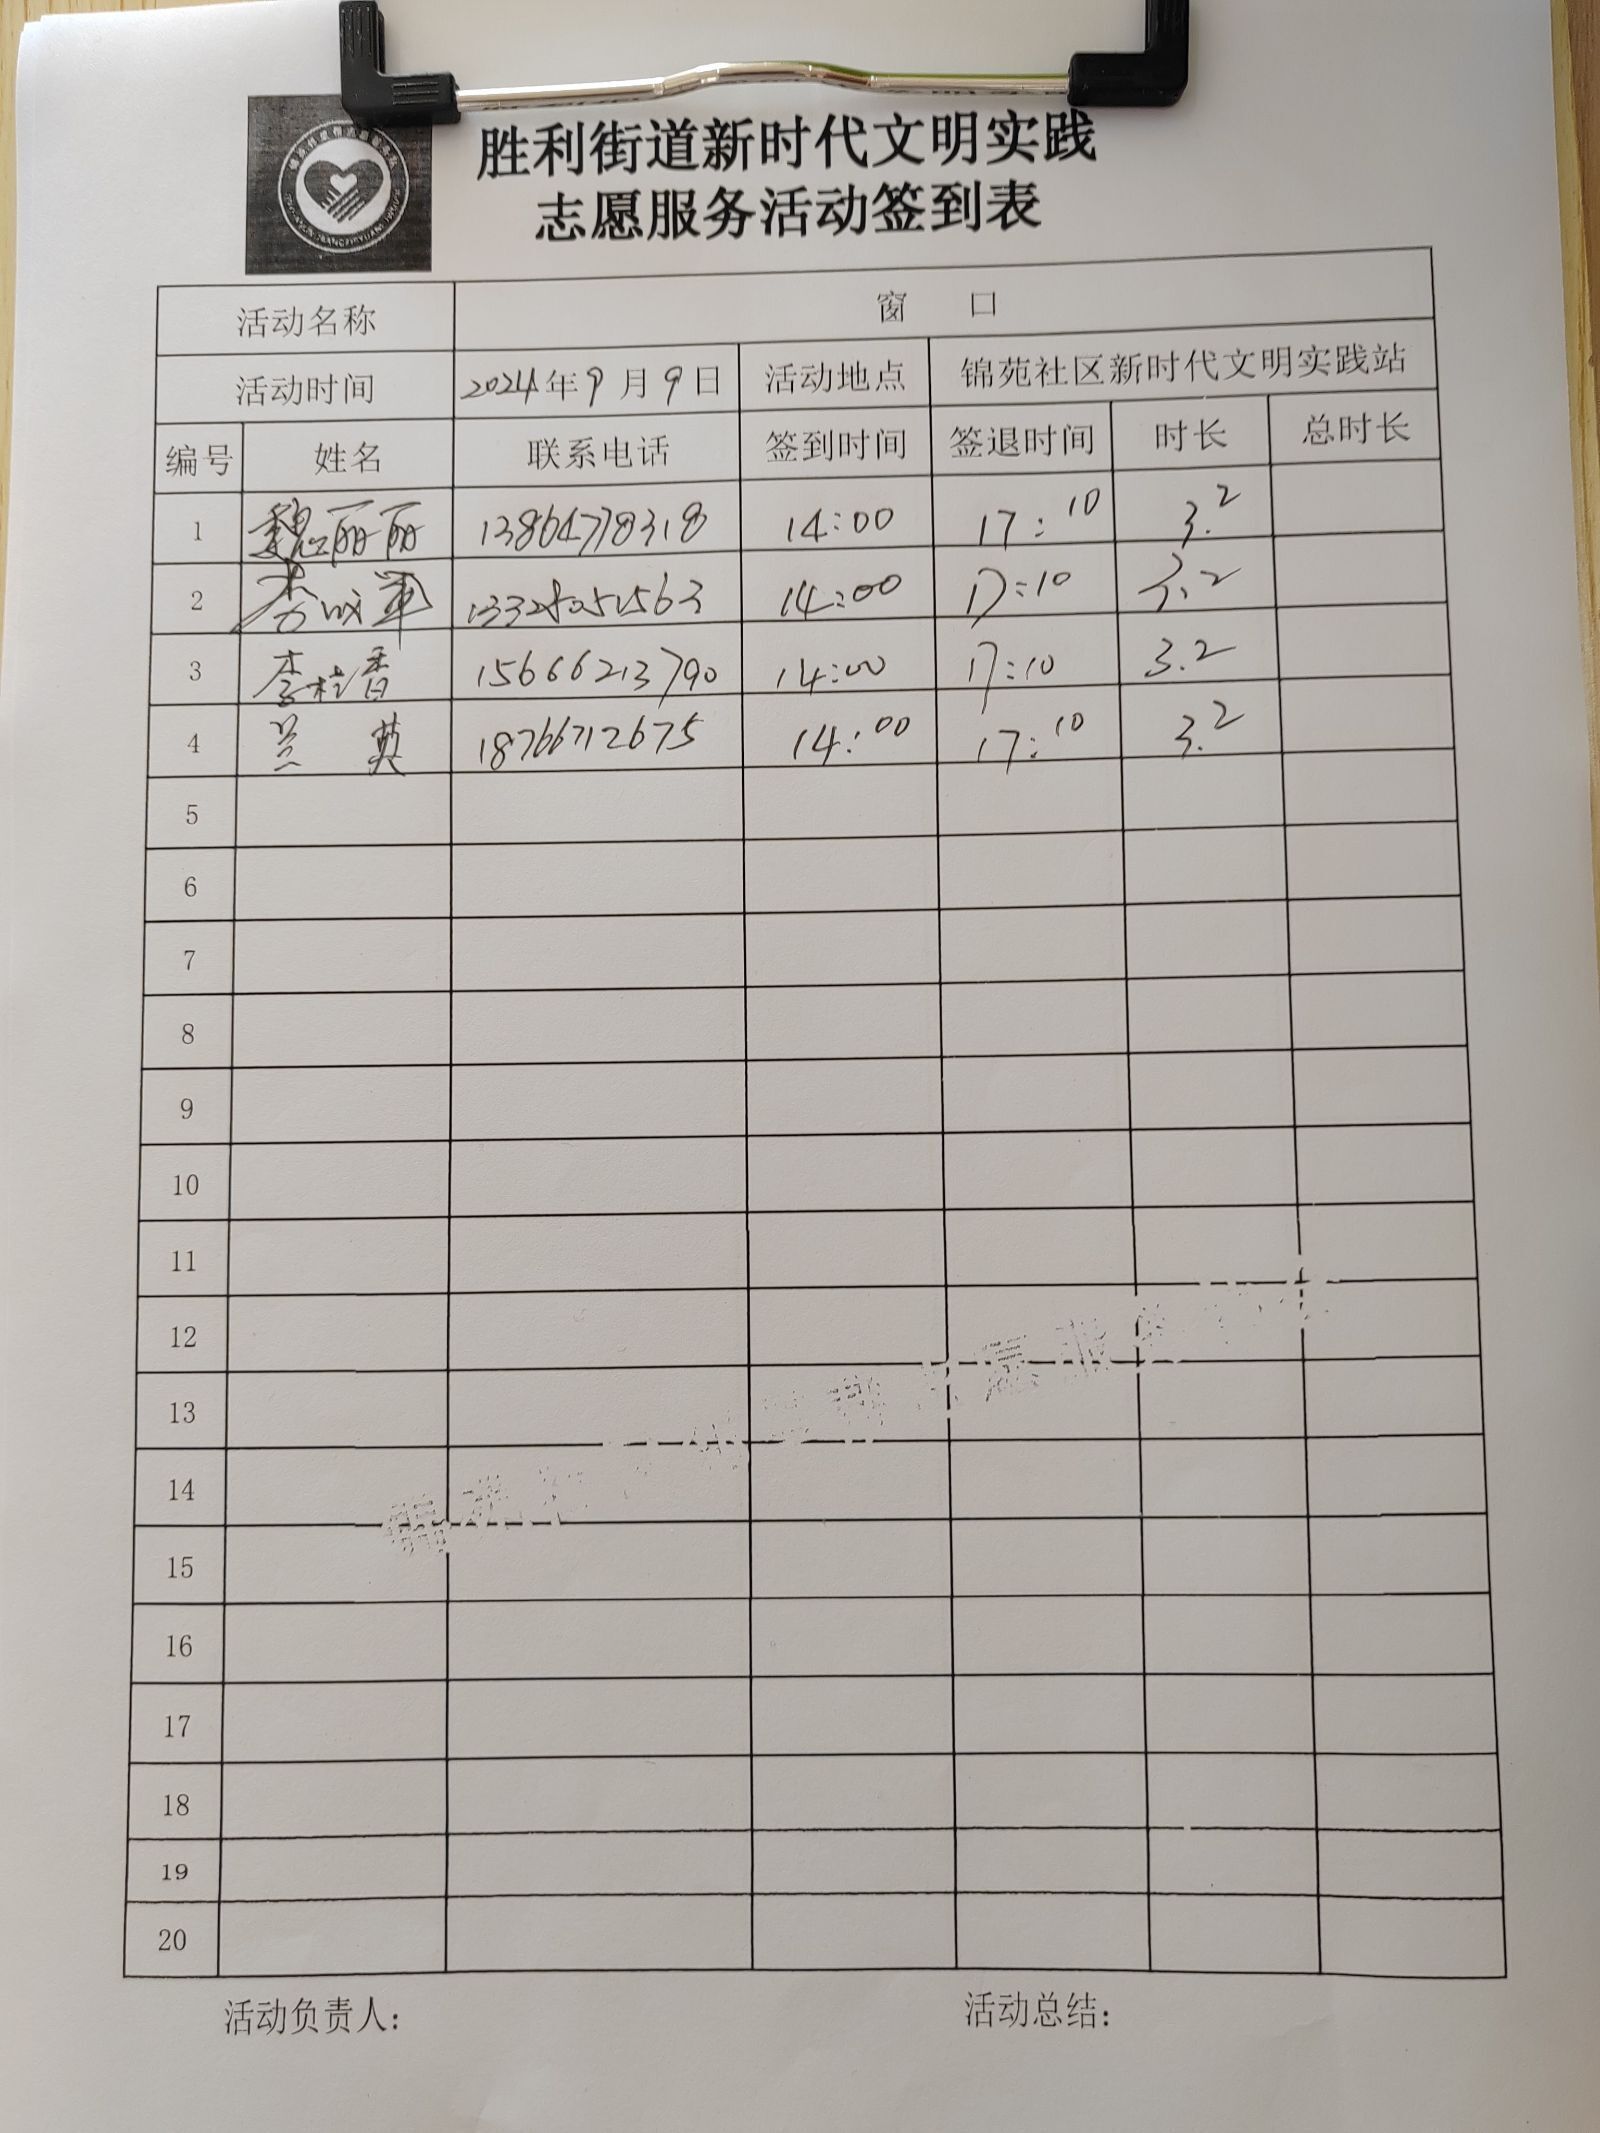 胜利街道新时代文明实践
志愿服务活动签到表
活动名称 窗 口
活动时间 2024年9月9日 活动地点 锦苑社区新时代文明实践站
编号 姓名 联系电话 签到时间 签退时间 时长 总时长
1 魏丽丽 13864778318 14:00 17:10 3.2
2 李成军 14:00 17:10 3.2
3 李桂香 15666213790 14:00 17:10 3.2
4 兰英 18766712675 14:00 17:10 3.2
5
6
7
8
9
10
11
12
13
14
15
16
17
18
19
20
活动负责人: 活动总结: